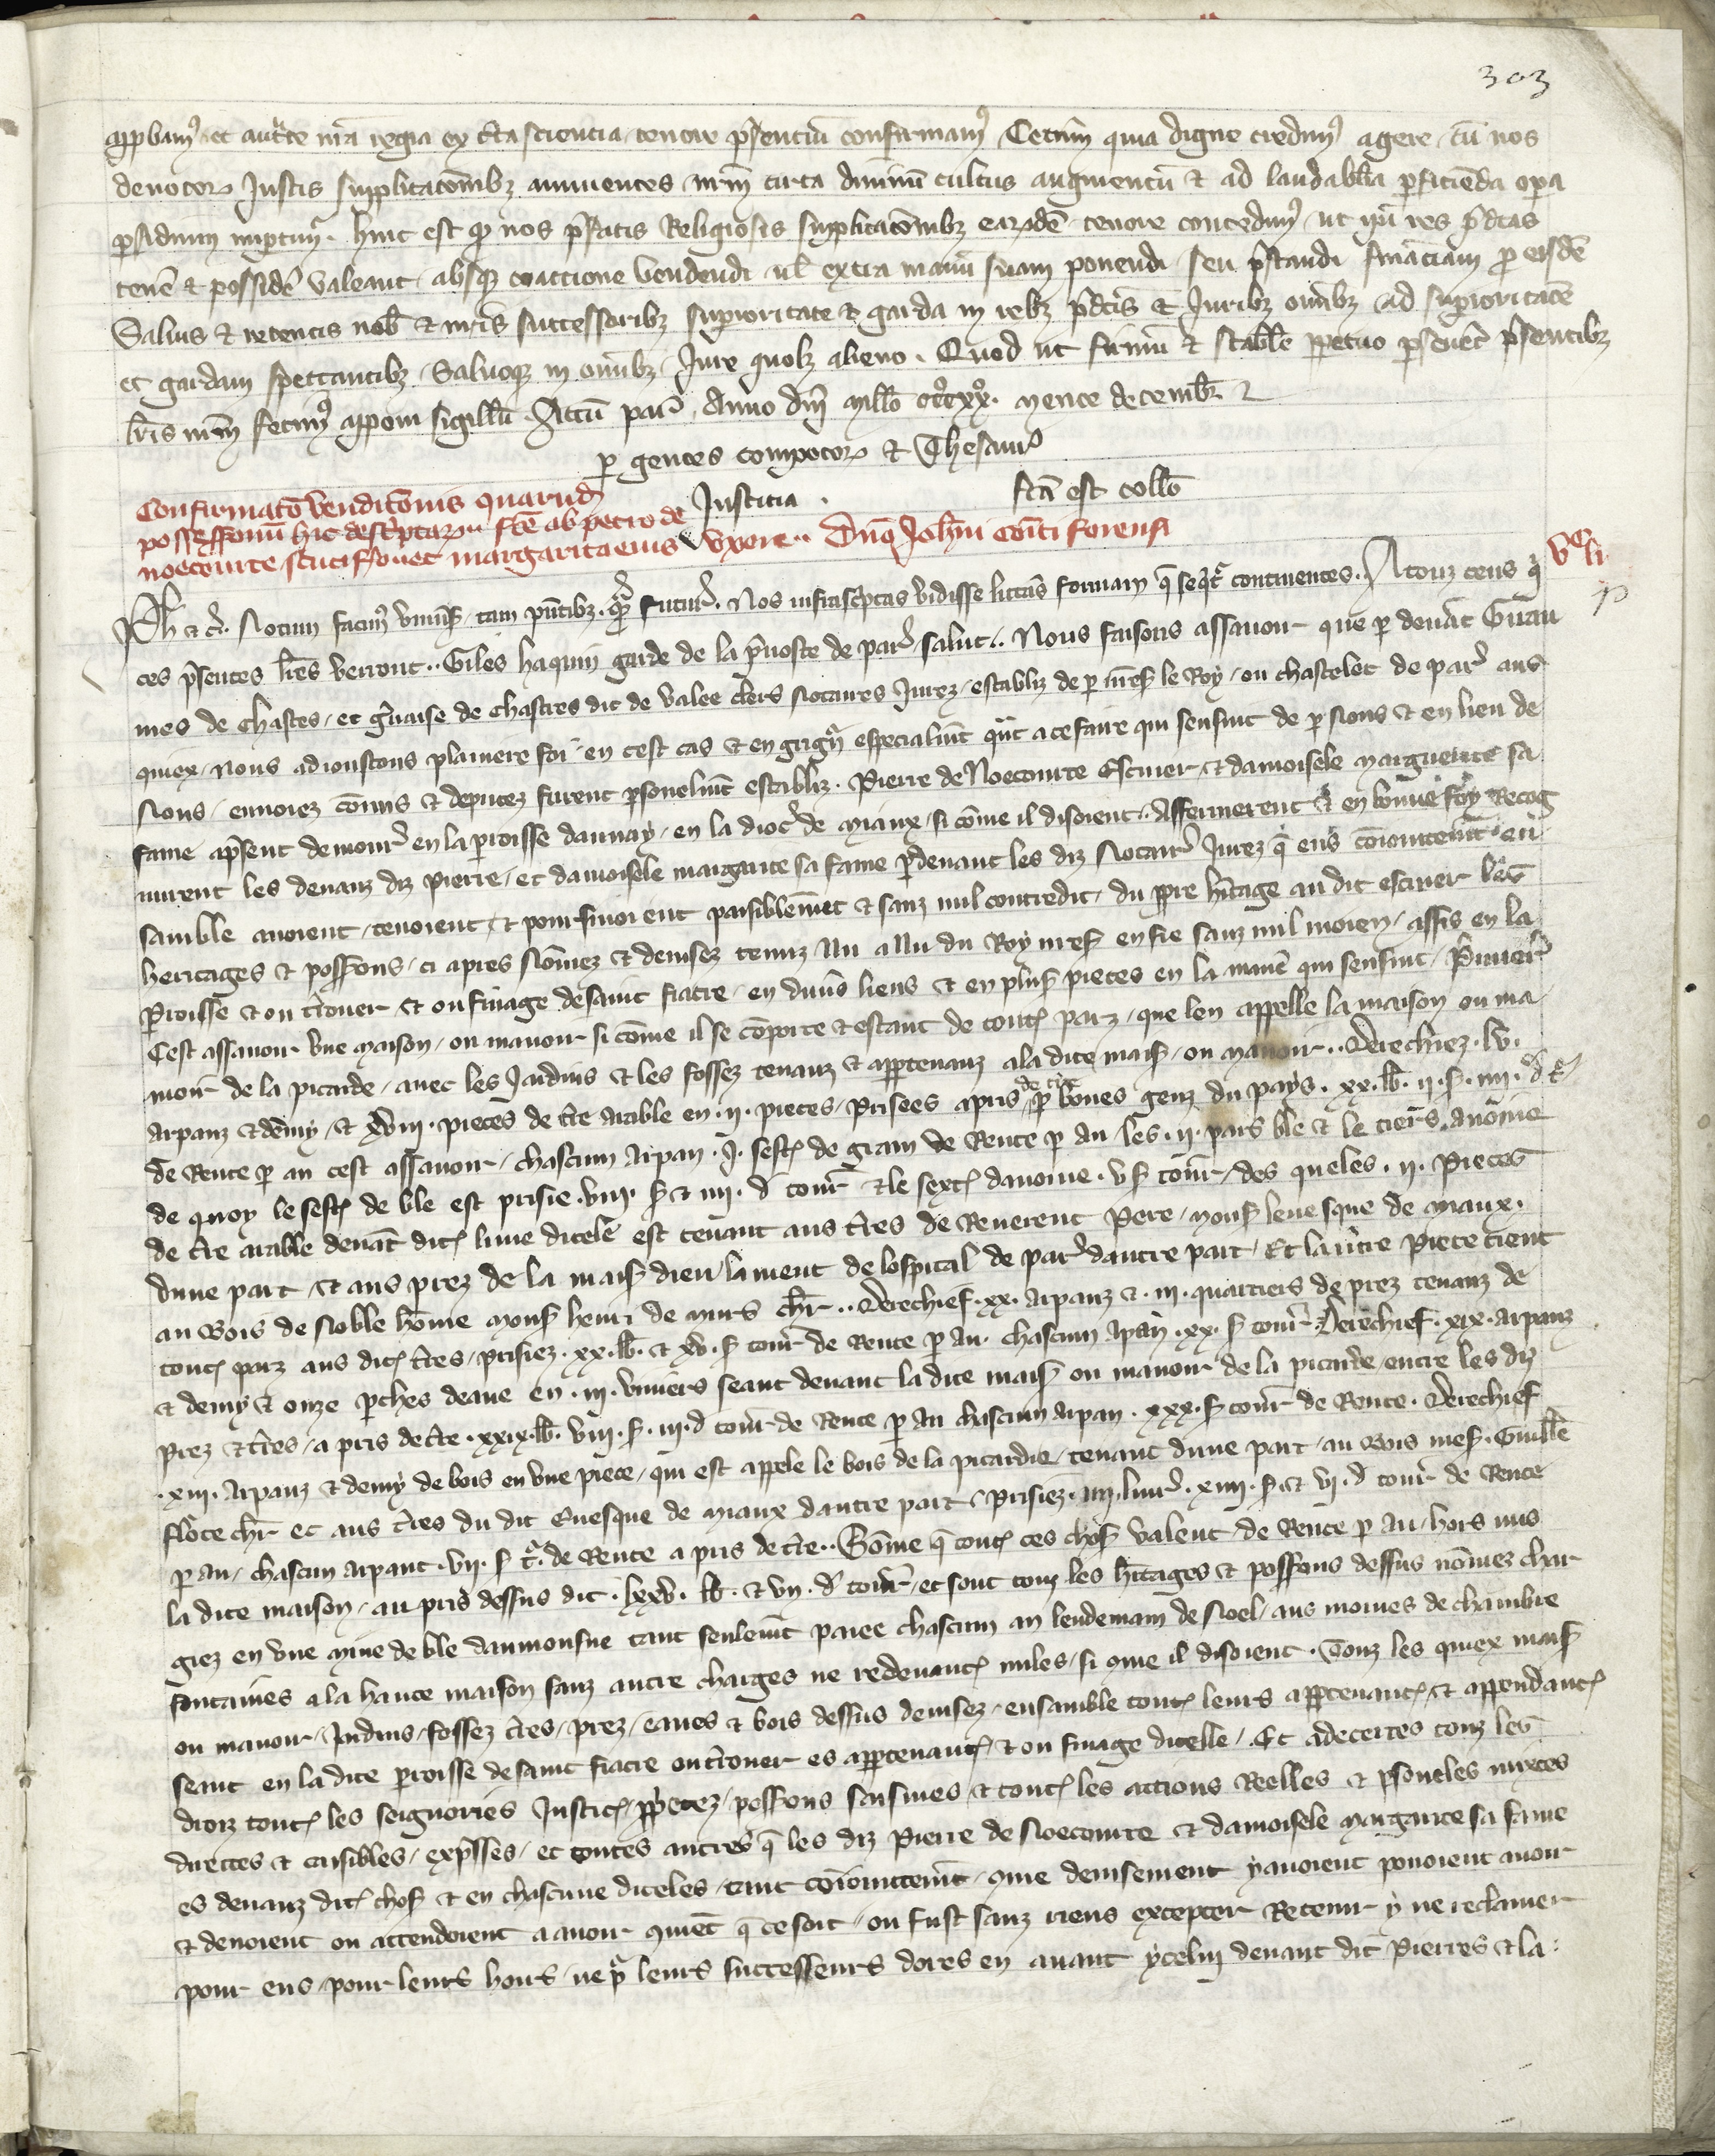 303
app̱bamꝯ et auct̾te nr̄a regia ex c̄ta sciencia tenore p̄sentiū confirmamꝯ Ceterū quia digne credimꝯ agere cū nos
deuotoꝝ Justis supplicatōnibꝫ annuentes nr̄m circa diuinū cultus augmentū et ad laudabilia ꝑficiēda opera
p̄sidium impertimꝰ. hinc est qꝫ nos p̄fatis Religiosis supplicatōnibꝫ earūdē tenore concedimꝯ ut ip̄i res p̄d̄cas
tenē et possidē valeant absqꝫ coactione vendendi ul̄ extra manū suam ponendi seu p̄standi financiam ꝓ eisdē
Saluis et retentis nob̄ et nr̄is successoribꝫ superioritate et garda in rebꝫ p̄d̄cis et Juribꝫ om̄ibꝫ ad superioritatē
et gardam spectantibꝫ Saluoqꝫ in om̄ibꝫ Jure quolꝫ alieno. Quod ut firmū et stabile ꝑpetuo ꝑseuēt p̄sentibꝫ
lr̄is nr̄m fecimꝯ apponi sigillū. Actū par̄ Anno dn̄i mill̄o ccc̊xx̊. mense decembr̄
ꝑ gentes compotoꝝ et Thesaur̄
Justicia. fc̄a est coll̄o
Confirmatō venditōnis quarūd̄
possessionū hic descriptaꝝ fc̄e ab petro de
noecourte scutiff̄o uet margarita eius uxore .. Dn̄o Joh̄ni com̄ti forensi
Ph̄ et c̄. Notum facimꝯ vniu̾s̄ tam p̄ntibꝫ qm̄ futur̄. Nos infrascriptas vidisse litt̾as formam q̄ seqt̾r continentes. A touz ceus q̾
ces p̄sentes lr̄es verront.. Giles haquin garde de la p̄uoste de par̄ salut.. Nous faisons assauoir que ꝑ deuāt Guau
mes de chastes et gu̾aise de chastres dit de valee clers Notaires Jurez establiz de ꝑ nr̄es̄ le Roy ou chastelet de par̄ aus
quiex nous adioustons planiere foi en cest cas et en grign̾r especialmēt qn̄t a ce faire qui sensuit de ꝑ Nous et en lieu de
Nous enuoiez cōmis et deputez furent ꝑsonelmēt establiz. Pierre de Noecourte Escuier et damoisele marguerite sa
fame ap̄sent demour̄ en la ꝑroisse daunay en la dioc̄ de miaux si cōme il disoient.. Affermerent et en bonne foy Recog
nurent les deuanz diz Pierre et damoisele margarite sa fame ꝑ deuant les diz Notair̄ Jurez q̄ eus cōiointemēt en
samble auoient tenoient et pourfiuoient paisiblemēt et sanz nul contredit du ꝓpre h̾itage au dit escuier les
heritages et poss̄ons ci apres Nōmez et deuisez tenuz Nu a Nu du Roy nr̄es̄ en fie sanz nul moien assis en la
ꝑroisse et ou t̾rouer et ou finage de saint fiacre en diu̾s liens et en plus̄ pieces en la manie̾ qui sensuit Primier̄
Cest assauoir vne maison ou manoir si cōme il se cōporte et estant de toutes̄ parz que len appelle la maison ou ma
noir de la picarde auec les Jardins et les fossez tenanz et apꝑtenanz a la dite mais̄ ou manoir.. Derechiez. lv.
arpanz et demy et xviii. pieces de t̾re arable en. ii. pieces Prisees a pris de t̾re ꝑ bones genz du pays. xx. lb̄. ii. s̄. iiii. d̄ t̾.
de Rente ꝑ an cest assauoir chascun Arpan. i. sest̾ de grain de Rente ꝑ an les. ii. pars ble et le tiers auoine
de quoy le sest̾ de ble est prisie. viii. s̄ et iiii. d̄ tour̄ et le sext̾ dauoine. v s̄ tour̄ des queles. ii. Pieces
de t̾re arable deuāt dit̾ lune dicele est tenant aus t̾res de Reuerent Pere mons̄ leuesque de miaux.
dune part et aus prez de la mais̄ dieu lament de lospital de par̄ dautre part Et lautre Piece tient
au Bois de Noble hōme mons̄ henri de murs ch̄r.. Derechief. xx. arpanz et. iii. quartiers de prez tenanz de
tout̾ parz aus dit̾ t̾res Prisiez. xx. lb̄. et xv. s̄ tour̄ de Rente ꝑ an. chascun Apan. xx. s̄ tour̄ Derechief. xix. arpanz
et demy et onze ꝑches deaue en. iii. viuiers seant deuant la dite mais̄ ou manoir de la picarde entre les diz
prez et t̾res a pris de t̾re. xxix. lb̄. viii. s̄. iii. d̄ tour̄ de Rente ꝑ an chascun arpan. xxx. s̄ tour̄ de Rente. Derechief
. xiii. Arpanz et demy de bois en vne piece qui est appele le bois de la picardie tenant dune part au Bois mes̄. Guill̄e
flote ch̄r et aus t̾res du dit Euesque de miaux dautre part Prisiez. iiii. liur̄. xiiii. s̄ et vi. d̄ tour̄ de Rente
ꝑ an chascun arpant. vii. s̄ t̾. de Rente a pris de t̾re.. Sōme q̄ tout̾ ces chos̄ valent de Rente ꝑ an hors mis
la dite maison au pris dessus dit. lxxv. lb̄. et vii. d̄ tour̄ et sont touz les h̾itages et poss̄ons dessus nōmez char
giez en vne mine de ble daumonsne tant seulemēt paiee chascun an lendemain de Noel aus moines de chambre
fontaines a la haute maison sanz autre charges ne redeuanc̾ nules si cōme il disoient. Touz les quiex mais̄
ou manoir Jardins fossez t̾res prez eaues et bois dessus deuisez ensamble tout̾ leurs apꝑtenanc̾ et appendanc̾
seant en la dite ꝑroisse de saint fiacre ou t̾rouer es apꝑtenanc̾ et ou finage dicelle. Et a decertes touz les
droiz tout̾ les seignories Justic̾ ꝓp̄etez poss̄ons saisines et tout̾ les actions Reelles et ꝑsonelles mixtes
directes et taisibles exp̄sses et toutes autres q̄ les diz Pierre de Noecourte et damoisele Margarite sa fame
es deuanz dit̾ chos̄ et en chascune diceles tant cōiointemēt cōme deuisement y auoient pouoient auoir
et deuoient ou attendoient a auoir cōmēt q̄ ce soit ou fust sanz riens excepter Retenir y ne reclamer
pour eus pour leurs hoirs ne p̾ leurs successeurs dores en auant y celui deuant dit Pierres et la